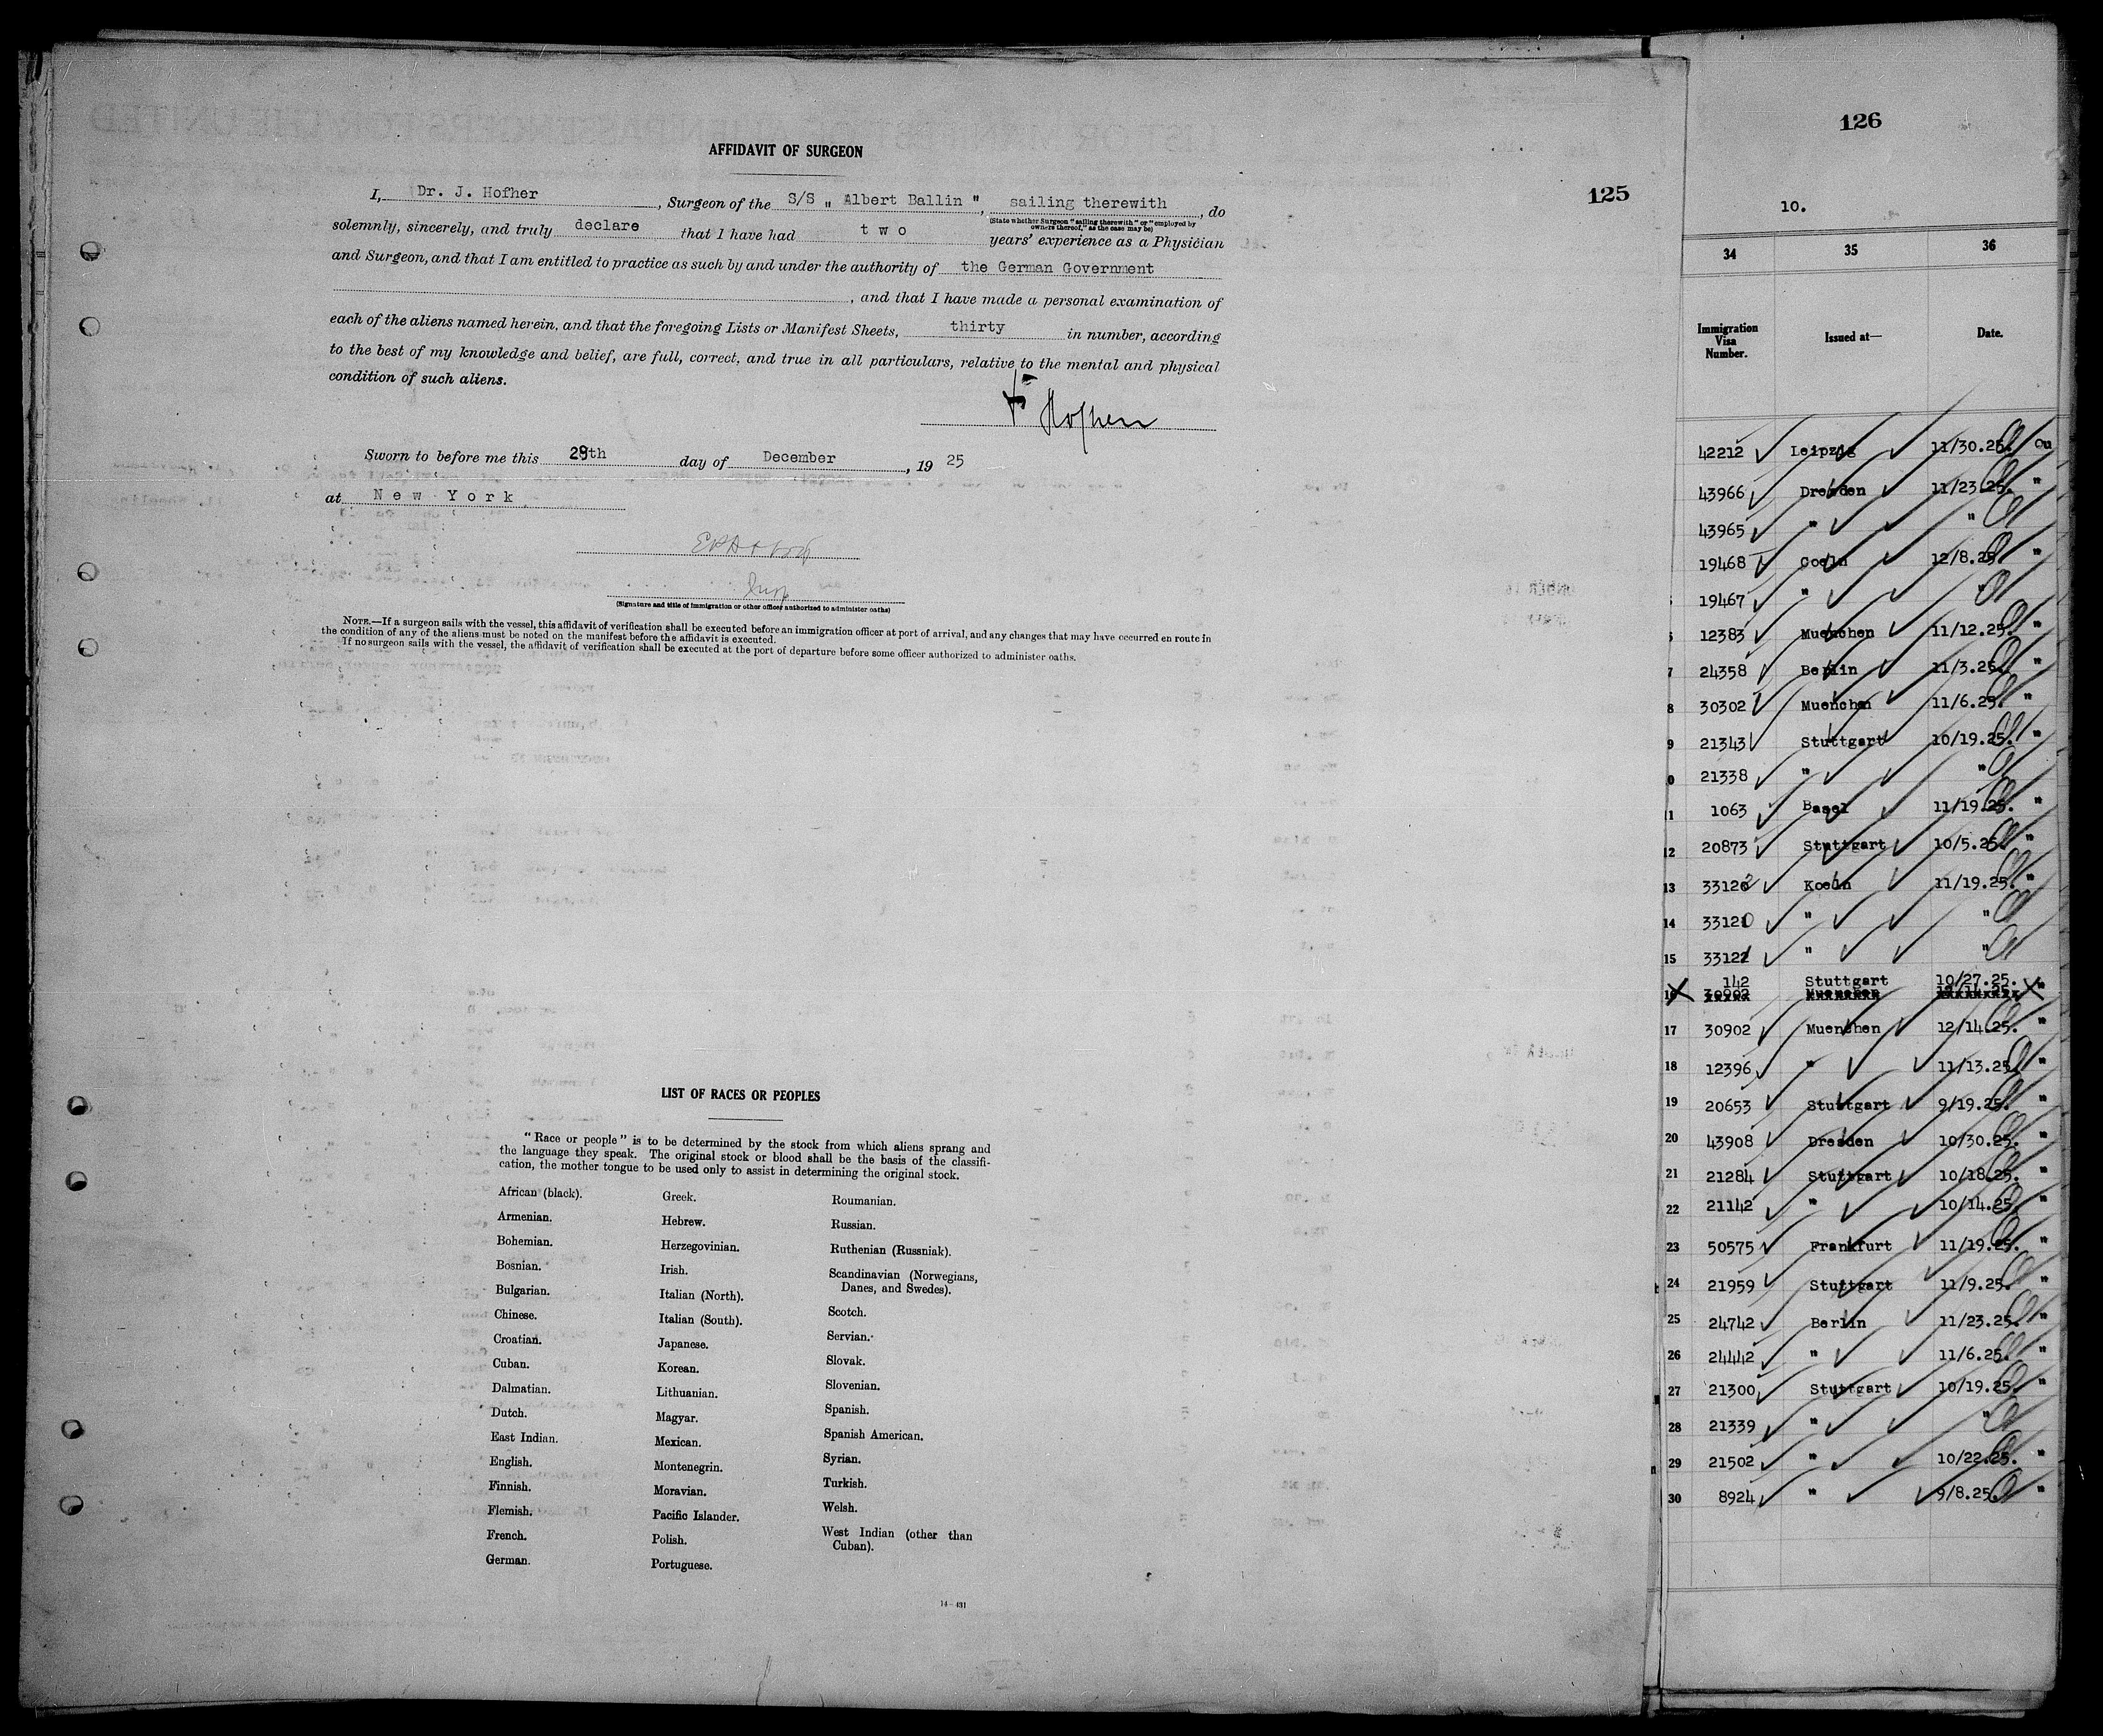 AFFIDAVIT OF SURGEON
125
I, Dr. J. Hofher, Surgeon of the S/S " Albert Ballin ", sailing therewith, do
(State whether Surgeon "sailing therewith" or "employed by
owners thereof," as the case may be)
solemnly, sincerely, and truly declare that I have had two years' experience as a Physician
and Surgeon, and that I am entitled to practice as such by and under the authority of the German Government
, and that I have made a personal examination of
each of the aliens named herein, and that the foregoing Lists or Manifest Sheets, thirty in number, according
to the best of my knowledge and belief, are full, correct, and true in all particulars, relative to the mental and physical
condition of such aliens.
Hofher
Sworn to before me this 28th day of December, 19 25
at New York.
Insp
(Signature and title of immigration or other officer authorized to administer oaths)
NOTE.—If a surgeon sails with the vessel, this affidavit of verification shall be executed before an immigration officer at port of arrival, and any changes that may have occurred en route in
the condition of any of the aliens must be noted on the manifest before the affidavit is executed.
If no surgeon sails with the vessel, the affidavit of verification shall be executed at the port of departure before some officer authorized to administer oaths.
LIST OF RACES OR PEOPLES
"Race or people" is to be determined by the stock from which aliens sprang and
the language they speak. The original stock or blood shall be the basis of the classifi-
cation, the mother tongue to be used only to assist in determining the original stock.
African (black).
Armenian.
Bohemian.
Bosnian.
Bulgarian.
Chinese.
Croatian.
Cuban.
Dalmatian.
Dutch.
East Indian.
English.
Finnish.
Flemish.
French.
German.
Greek.
Hebrew.
Herzegovinian.
Irish.
Italian (North).
Italian (South).
Japanese.
Korean.
Lithuanian.
Magyar.
Mexican.
Montenegrin.
Moravian.
Pacific Islander.
Polish.
Portuguese.
Roumanian.
Russian.
Ruthenian (Russniak).
Scandinavian (Norwegians,
Danes, and Swedes).
Scotch.
Servian.
Slovak.
Slovenian.
Spanish.
Spanish American.
Syrian.
Turkish.
Welsh.
West Indian (other than
Cuban).
14—431
126
10.
34 35 36
Immigration Visa Number. Issued at— Date.
42212 Leipzig 11/30.25.
43966 Dresden 11/23.25. "
43965 " "
19468 Coeln 12/8.25 "
19467 " "
12383 Muenchen 11/12.25. "
7 24358 Berlin 11/3.25. "
8 30302 Muenchen 11/6.25. "
9 21343 Stuttgart 10/19.25. "
0 21338 " "
11 1063 Basel 11/19.25. "
12 20873 Stuttgart 10/5.25. "
13 33122 Koeln 11/19.25. "
14 33120 " "
15 33121 " "
142 Stuttgart 10/27.25. "
16 30902 Muenchen
17 30902 Muenchen 12/14.25. "
18 12396 " 11/13.25 "
19 20653 Stuttgart 9/19.25. "
20 43908 Dresden 10/30.25. "
21 21284 Stuttgart 10/18.25. "
22 21142 " 10/14.25. "
23 50575 Frankfurt 11/19.25. "
24 21959 Stuttgart 11/9.25. "
25 24742 Berlin 11/23.25. "
26 24442 " 11/6.25. "
27 21300 Stuttgart 10/19.25 "
28 21339 " "
29 21502 " 10/22.25. "
30 8924 " 9/8.25. "